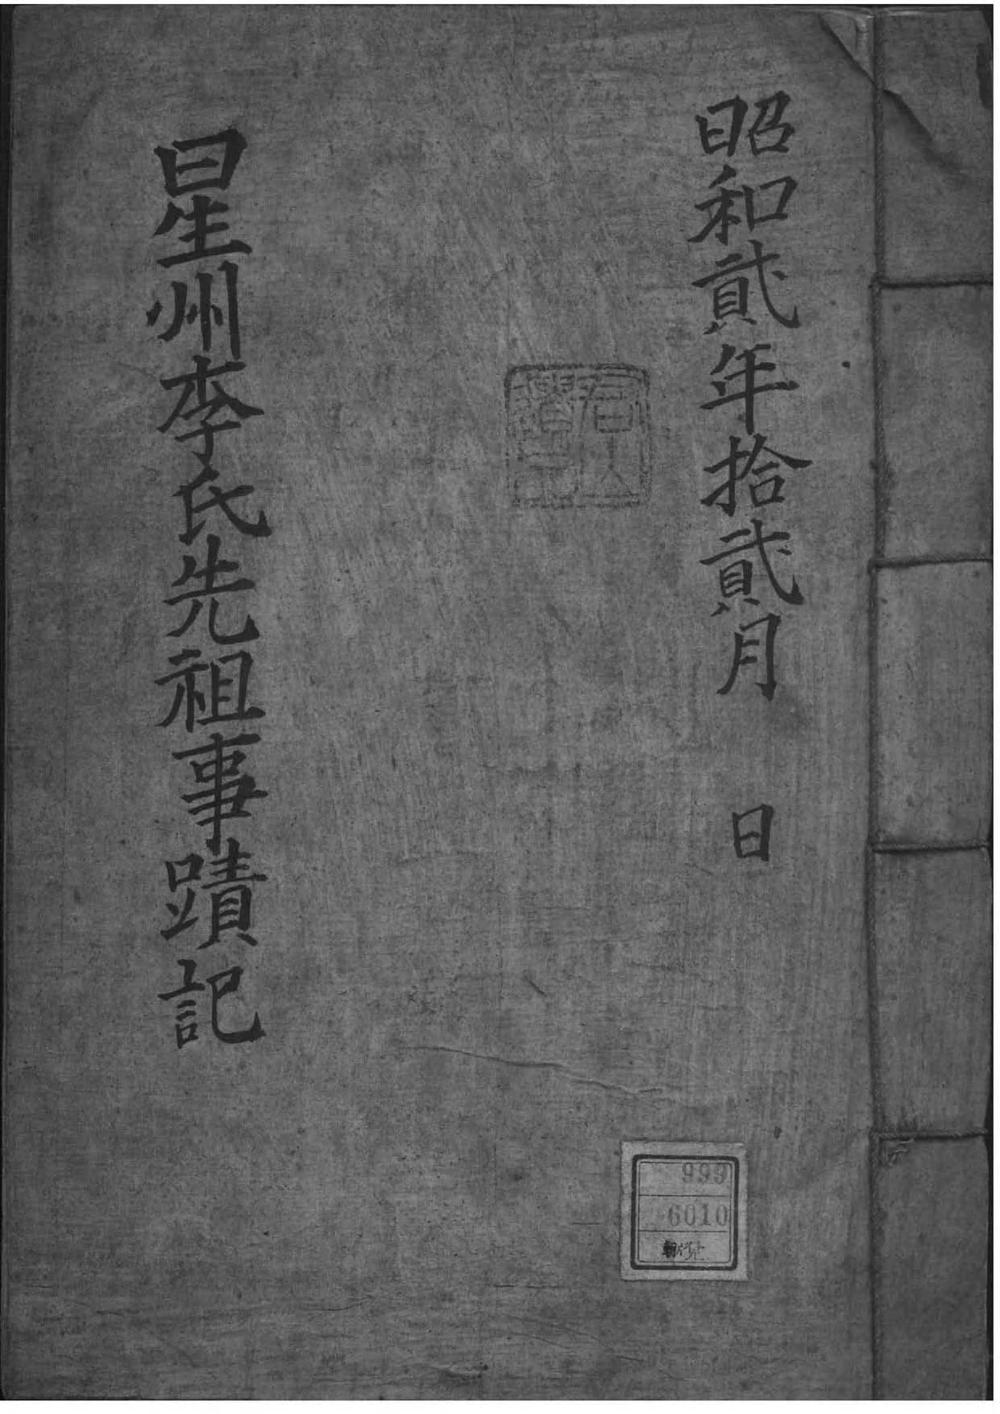 昭和貳年拾貳月 日
星州李氏先祖事蹟記
999
6010